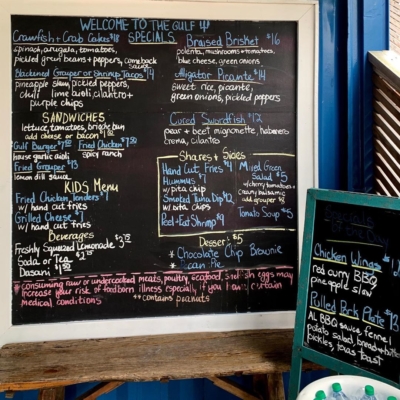 WELCOME TO THE GULF
SPECIALS
Crawfish + Crab Cakes $18
spinach, arugula, tomatoes,
pickled green beans + peppers, comeback
sauce
Blackened Grouper or Shrimp Tacos $14
pineapple slaw, pickled peppers,
chili lime aioli, cilantro +
purple chips
SANDWICHES
lettuce, tomatoes, brioche bun
add cheese or bacon $1.50
Gulf Burger Fried Chicken
house garlic aioli spicy ranch
Fried Grouper $13
lemon dill sauce
KIDS Menu
Fried Chicken Tenders
w/ hand cut fries
Grilled Cheese
w/ hand cut fries
Beverages
Freshly Squeezed Lemonade
Soda or Tea
Dasani
Braised Brisket $16
polenta, mushrooms + tomatoes,
blue cheese, green onions
Alligator Picante $14
sweet rice, picante,
green onions, pickled peppers
Cured Swordfish $12
pear + beet mignonette, habanero
crema, cilantro
Shares + Sides
Hand Cut Fries $4
Hummus
w/ pita chip
Smoked Tuna Dip $12
w/ pita chips
Peel + Eat Shrimp
Mixed Green
Salad $5
w/ cherry tomatoes +
creamy balsamic
add grouper $8
Tomato Soup $5
Dessert $5
* Chocolate Chip Brownie
* Pecan Pie
* consuming raw or undercooked meats, poultry, seafood, shellfish, eggs may
increase your risk of foodborn illness especially if you have certain
medical conditions
** contains peanuts
Chicken Wings
red curry BBQ
pineapple slaw
Pulled Pork Plate $13
AL BBQ sauce, fennel
potato salad, bread + butter
pickles, texas toast